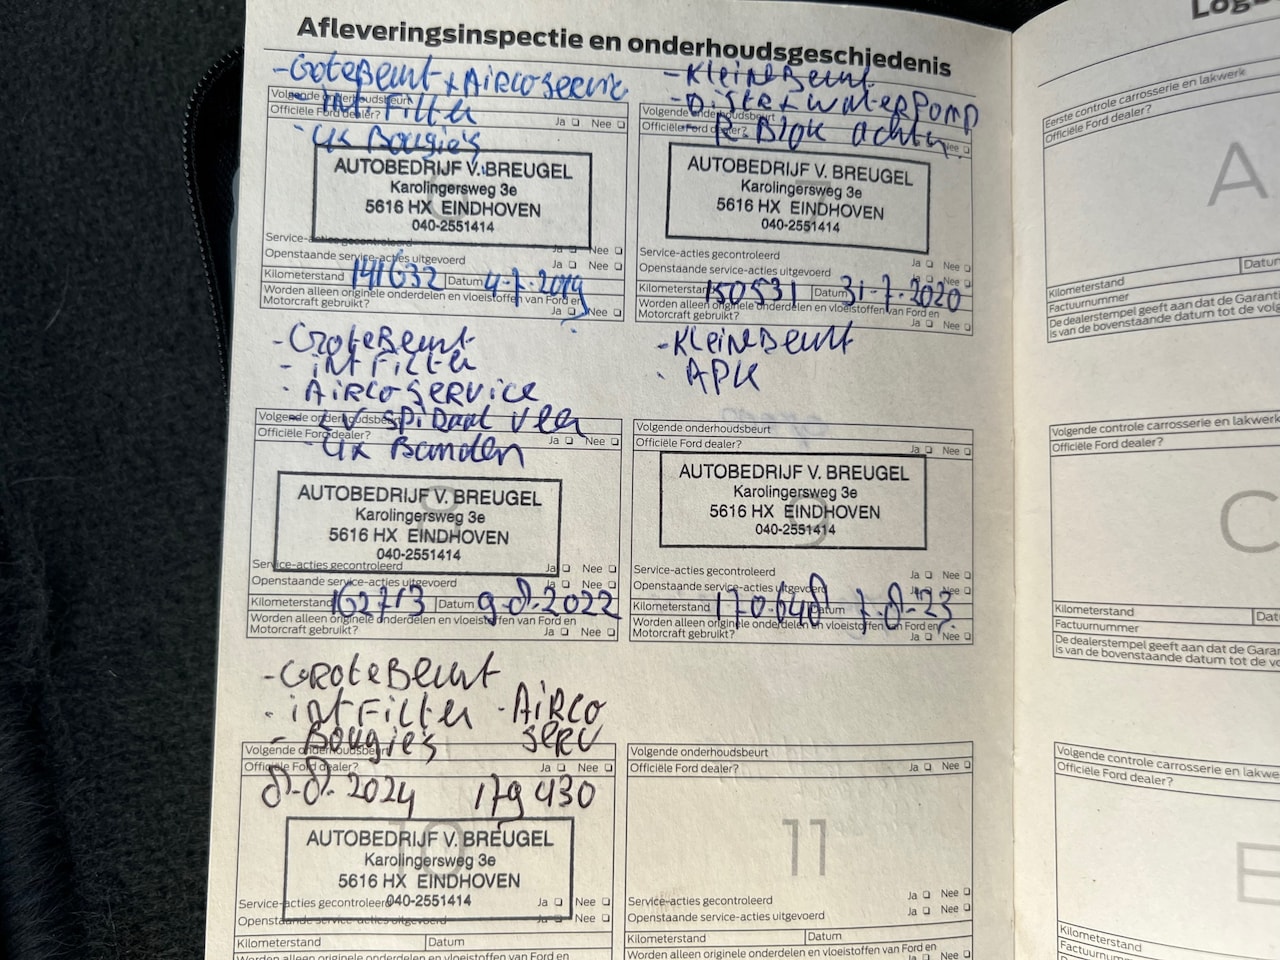 Afleveringsinspectie en onderhoudsgeschiedenis
- Grote Beurt + Airco Service
Volgende onderhoudsbeurt
- int Filter
Officiële Ford dealer? Ja Nee
- 4x Bougies
AUTOBEDRIJF V. BREUGEL
Karolingersweg 3e
5616 HX EINDHOVEN
040-2551414
Service-acties gecontroleerd Ja Nee
Openstaande service-acties uitgevoerd Ja Nee
Kilometerstand 141632 Datum 4-7-2019
Worden alleen originele onderdelen en vloeistoffen van Ford en
Motorcraft gebruikt? Ja Nee
- Kleine Beurt
- Distr + waterPomp
Volgende onderhoudsbeurt
Officiële Ford dealer? Nee
R-Blok achter
AUTOBEDRIJF V. BREUGEL
Karolingersweg 3e
5616 HX EINDHOVEN
040-2551414
Service-acties gecontroleerd Ja Nee
Openstaande service-acties uitgevoerd Ja Nee
Kilometerstand 150531 Datum 31-7-2020
Worden alleen originele onderdelen en vloeistoffen van Ford en
Motorcraft gebruikt? Ja Nee
- Grote Beurt
- int Filter
- Airco service
Volgende onderhoudsbeurt
LV spiraal veer
Officiële Ford dealer? Ja Nee
- 4x Banden
AUTOBEDRIJF V. BREUGEL
Karolingersweg 3e
5616 HX EINDHOVEN
040-2551414
Service-acties gecontroleerd Ja Nee
Openstaande service-acties uitgevoerd Ja Nee
Kilometerstand 162713 Datum 9-8-2022
Worden alleen originele onderdelen en vloeistoffen van Ford en
Motorcraft gebruikt? Ja Nee
- Kleine Beurt
- APK
Volgende onderhoudsbeurt
Officiële Ford dealer? Ja Nee
AUTOBEDRIJF V. BREUGEL
Karolingersweg 3e
5616 HX EINDHOVEN
040-2551414
9
Service-acties gecontroleerd Ja Nee
Openstaande service-acties uitgevoerd Ja Nee
Kilometerstand 170.648 Datum 7-8-23
Worden alleen originele onderdelen en vloeistoffen van Ford en
Motorcraft gebruikt? Ja Nee
- Grote Beurt
- int Filter - Airco serv
- Bougies
Volgende onderhoudsbeurt
Officiële Ford dealer? Ja Nee
8-8-2024 179430
10
AUTOBEDRIJF V. BREUGEL
Karolingersweg 3e
5616 HX EINDHOVEN
040-2551414
Service-acties gecontroleerd Ja Nee
Openstaande service-acties uitgevoerd Ja Nee
Kilometerstand Datum
Worden alleen originele onderdelen en vloeistoffen van Ford en
Volgende onderhoudsbeurt
Officiële Ford dealer? Ja Nee
11
Service-acties gecontroleerd Ja Nee
Openstaande service-acties uitgevoerd Ja Nee
Kilometerstand Datum
Worden alleen originele onderdelen en vloeistoffen van Ford en
Ja Nee
Eerste controle carrosserie en lakwerk
Officiële Ford dealer?
A
Kilometerstand Datum
Factuurnummer
De dealerstempel geeft aan dat de Garanti
is van de bovenstaande datum tot de volg
Volgende controle carrosserie en lakwerk
Officiële Ford dealer?
C
Kilometerstand Dat
Factuurnummer
De dealerstempel geeft aan dat de Garan
is van de bovenstaande datum tot de vo
Volgende controle carrosserie en lakwe
Officiële Ford dealer?
E
Kilometerstand
Factuurnumm